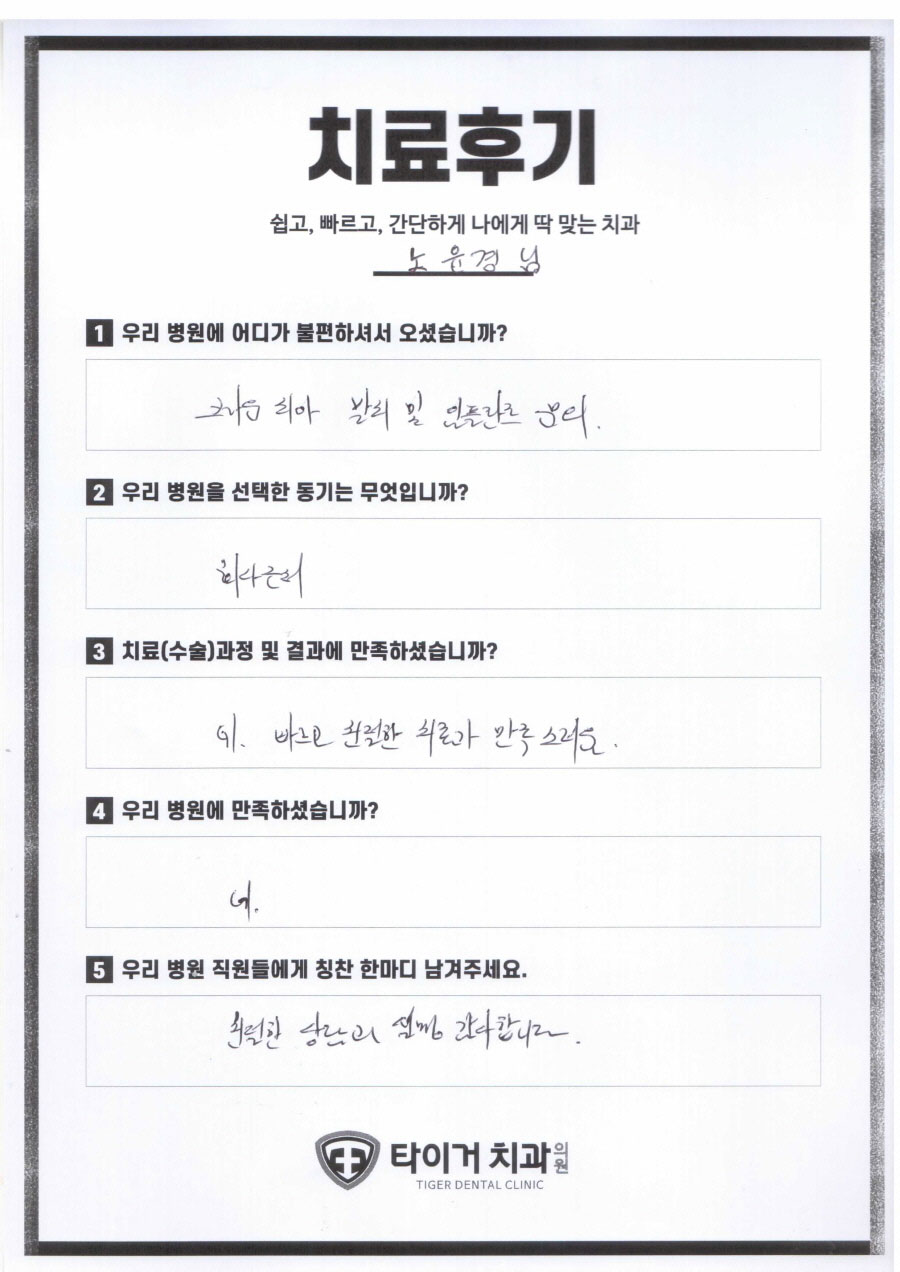 치료후기
쉽고, 빠르고, 간단하게 나에게 딱 맞는 치과
노윤경 님
1 우리 병원에 어디가 불편하셔서 오셨습니까?
크라운 치아 발치 및 임플란트 문의.
2 우리 병원을 선택한 동기는 무엇입니까?
회사근처
3 치료(수술)과정 및 결과에 만족하셨습니까?
네. 빠르고 친절한 치료가 만족스러워요.
4 우리 병원에 만족하셨습니까?
네.
5 우리 병원 직원들에게 칭찬 한마디 남겨주세요.
친절한 상담과 설명 감사합니다.
타이거 치과의원
TIGER DENTAL CLINIC